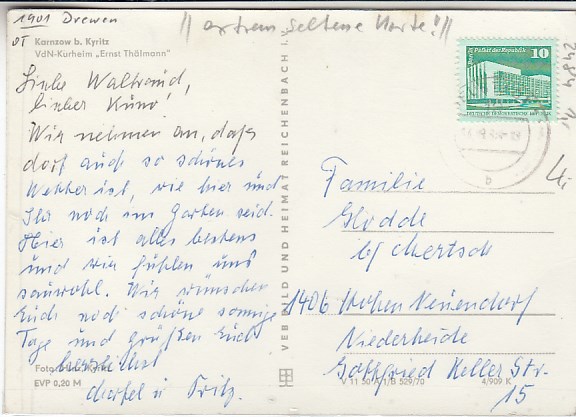 1901 Drewen
// extrem seltene Karte! //
DT
Karnzow b. Kyritz
VdN-Kurheim „Ernst Thälmann"
Liebe Waltraud,
lieber Kuno!
Wir nehmen an, daß
dort auch so schönes
Wetter ist, wie hier und
Ihr noch im Garten seid.
Hier ist alles bestens
und wir fühlen uns
sauwohl. Wir wünschen
Euch noch schöne sonnige
Tage und grüßen Euch
herzlichst
u. Fritz.
Foto
EVP 0,20 M
VEB BILD UND HEIMAT REICHENBACH i. V.
V 11 50 A 1/B 529/70
4/909 K
Berlin, Palast der Republik
10
DEUTSCHE DEMOKRATISCHE REPUBLIK
b
Familie
Glodde
b/ Mertsch
1406 Hohen Neuendorf
Niederheide
Gottfried Keller Str.
15